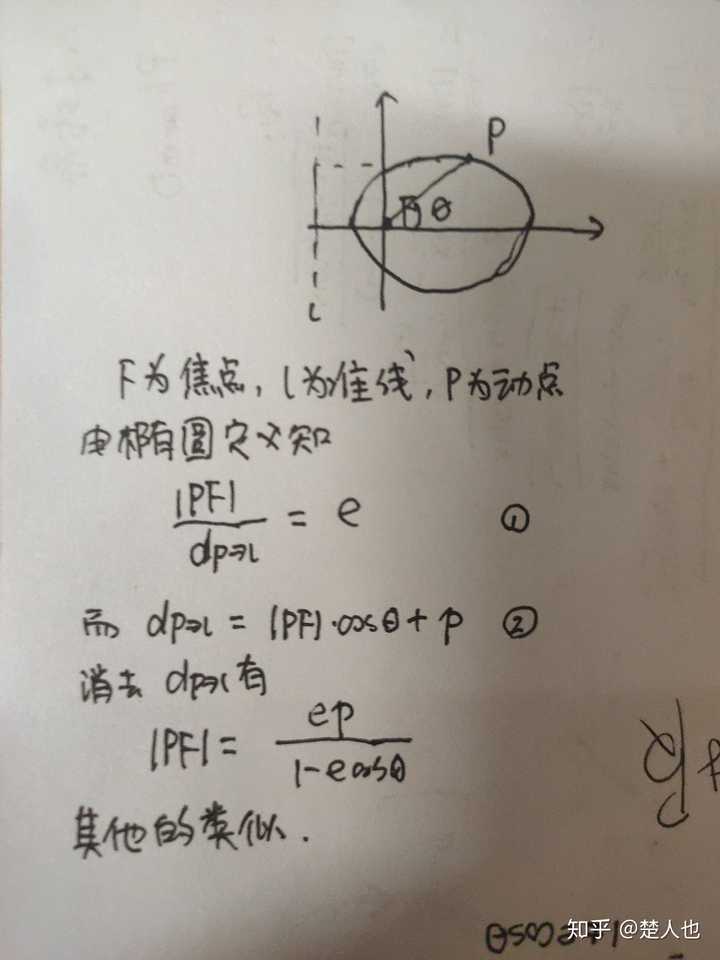 P
F θ
l
F为焦点，l为准线，P为动点
由椭圆定义知
|PF| / dP→l = e ①
而 dP→l = |PF|·cosθ + p ②
消去 dP→l 有
|PF| = ep / 1-ecosθ
其他的类似.
知乎 @楚人也